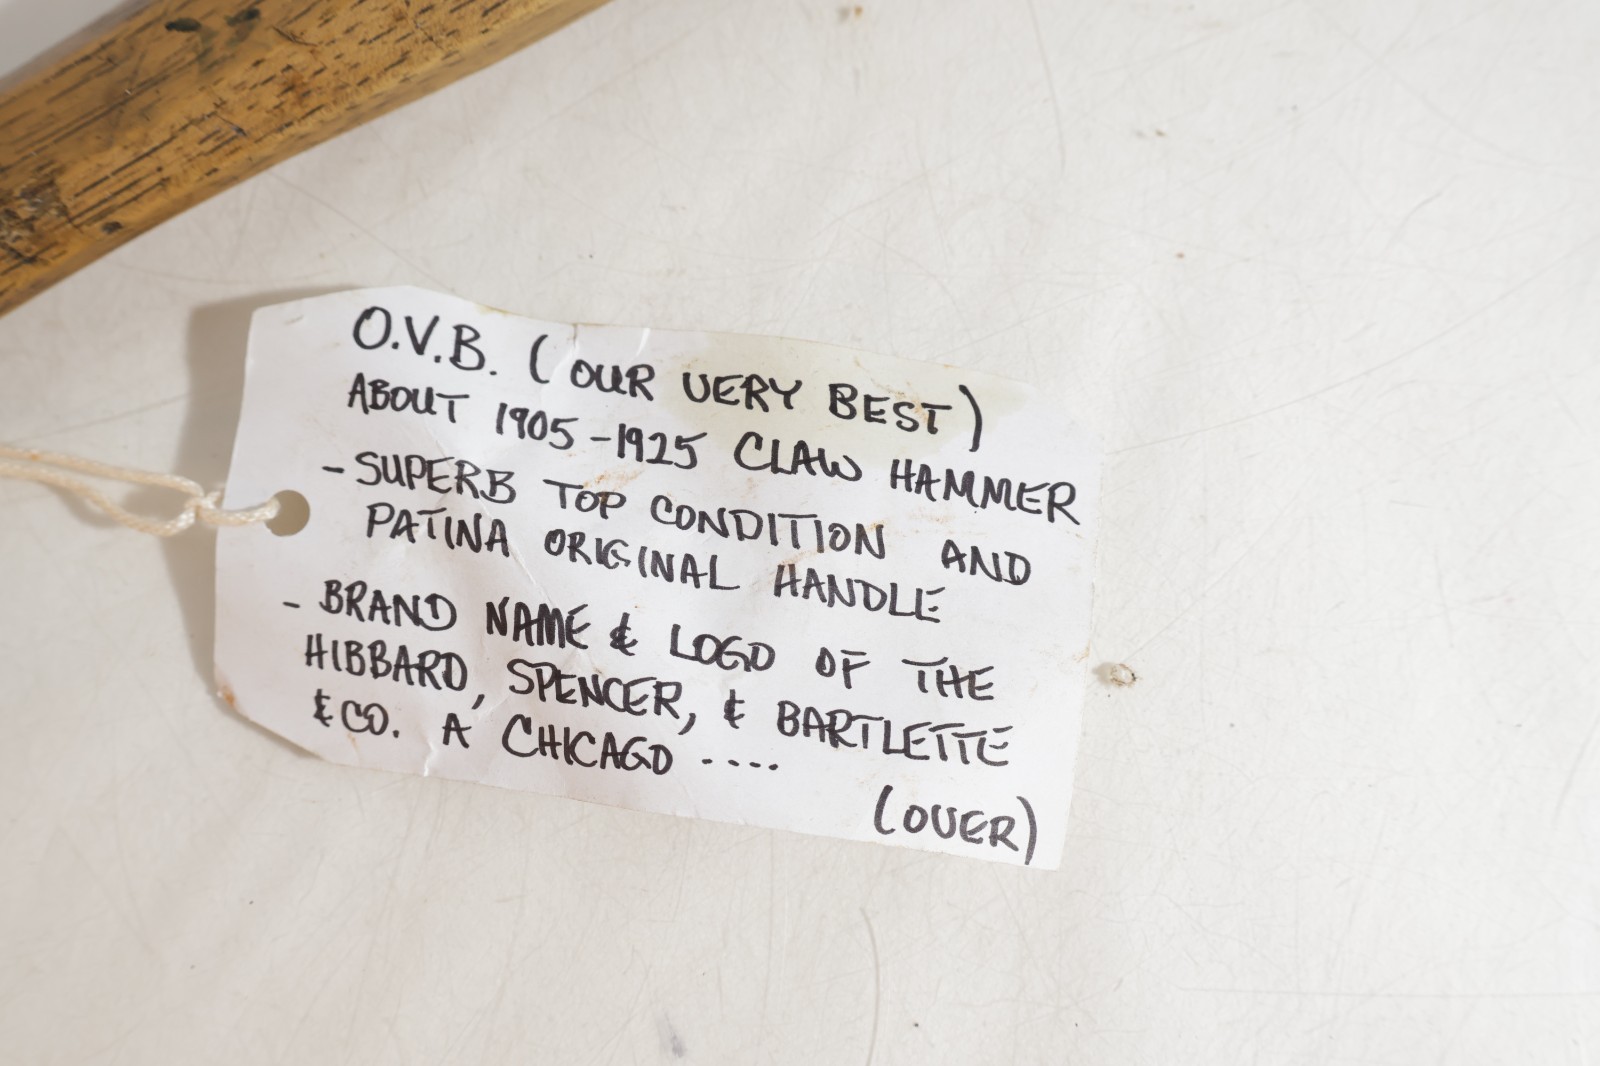 O.V.B. (OUR VERY BEST)
ABOUT 1905-1925 CLAW HAMMER
- SUPERB TOP CONDITION AND
PATINA ORIGINAL HANDLE
- BRAND NAME & LOGO OF THE
HIBBARD, SPENCER, & BARTLETTE
& CO. A CHICAGO ....
(OVER)